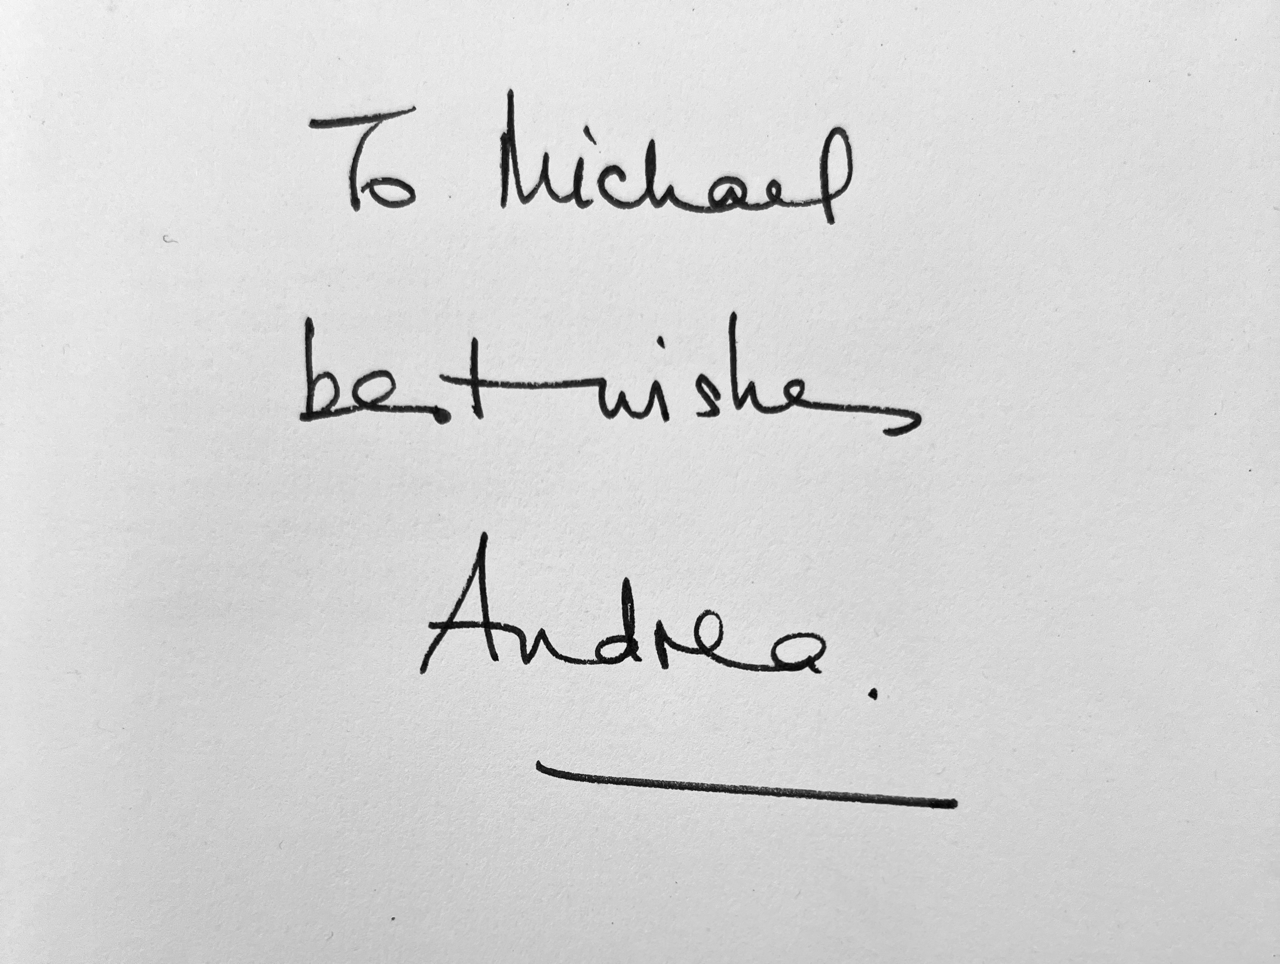 To Michael
best wishes
Andrea.